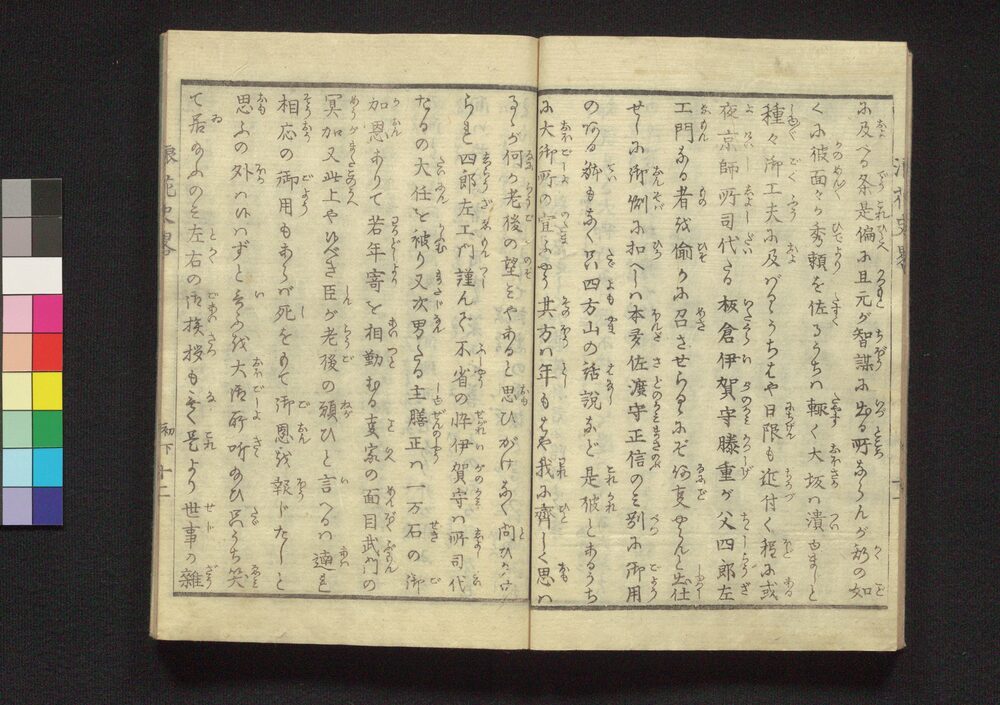 に及べる条是偏に且元が智謀に出る所ならんが斯の如
くに彼面々が秀頼を佐るうちハ輙く大坂ハ潰ゆまじと
種々御工夫に及バるゝうちはや日限も近付く程に或
夜京師所司代たる板倉伊賀守勝重が父四郎左
エ門なる者を偷かに召させらるゝにぞ何事やらんと出仕
せしに御側に扣へしハ本多佐渡守正信のミ別に御用
のある躰もなく只四方山の話説など是彼とあるうち
に大御所の宣ふやう其方ハ年もはや我に齊しく思ハ
るゝが何か老後の望ミやあると思ひがけなく問ひ給へ
らしを四郎左エ門謹んで不省の悴伊賀守ハ所司代
たるの大任を被り又次男たる主膳正ハ一万石の御
加恩ありて若年寄を相勤むる事家の面目武門の
冥加又此上やハいべき臣が老後の願ひと言へるハ適々
相応の御用もあらバ死をもて御恩を報じたしと
思ふの外ハいハずと言ふを大御所听給ひ只うち笑
て居給ふのミ左右の御挨拶もなく是より世事の雜
浪花史畧
初下 十二